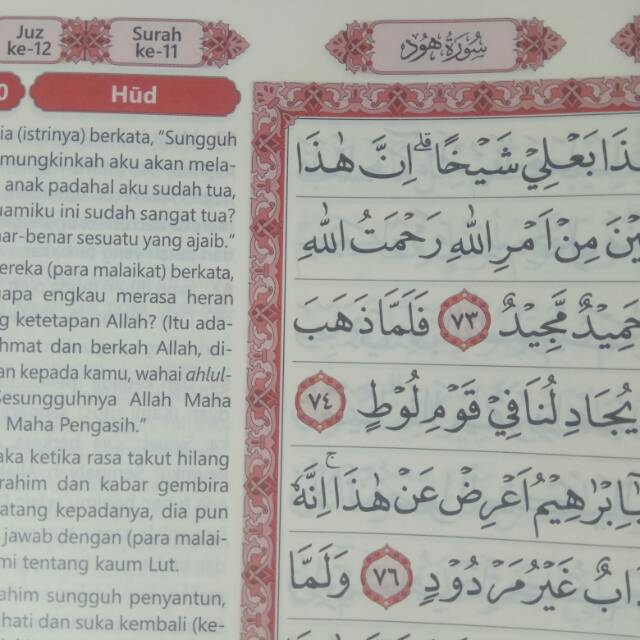 Juz
ke-12
Surah
ke-11
سُوْرَةُ هُوْد
Hūd
(istrinya) berkata, "Sungguh
mungkinkah aku akan mela-
anak padahal aku sudah tua,
ini sudah sangat tua?
sesuatu yang ajaib."
(para malaikat) berkata,
engkau merasa heran
ketetapan Allah? (Itu ada-
dan berkah Allah, di-
kepada kamu, wahai ahlul-
Sesungguhnya Allah Maha
Maha Pengasih."
ketika rasa takut hilang
dan kabar gembira
kepadanya, dia pun
jawab dengan (para malai-
tentang kaum Lut.
sungguh penyantun,
hati dan suka kembali (ke-
بَعْلِيْ شَيْخًا ۗ اِنَّ هٰذَا
مِنْ اَمْرِ اللّٰهِ رَحْمَتُ اللّٰهِ
حَمِيْدٌ مَّجِيْدٌ ٧٣ فَلَمَّا ذَهَبَ
يُجَادِلُنَا فِيْ قَوْمِ لُوْطٍ ٧٤
يٰٓاِبْرٰهِيْمُ اَعْرِضْ عَنْ هٰذَا ۚ اِنَّهٗ
غَيْرُ مَرْدُوْدٍ ٧٦ وَلَمَّا